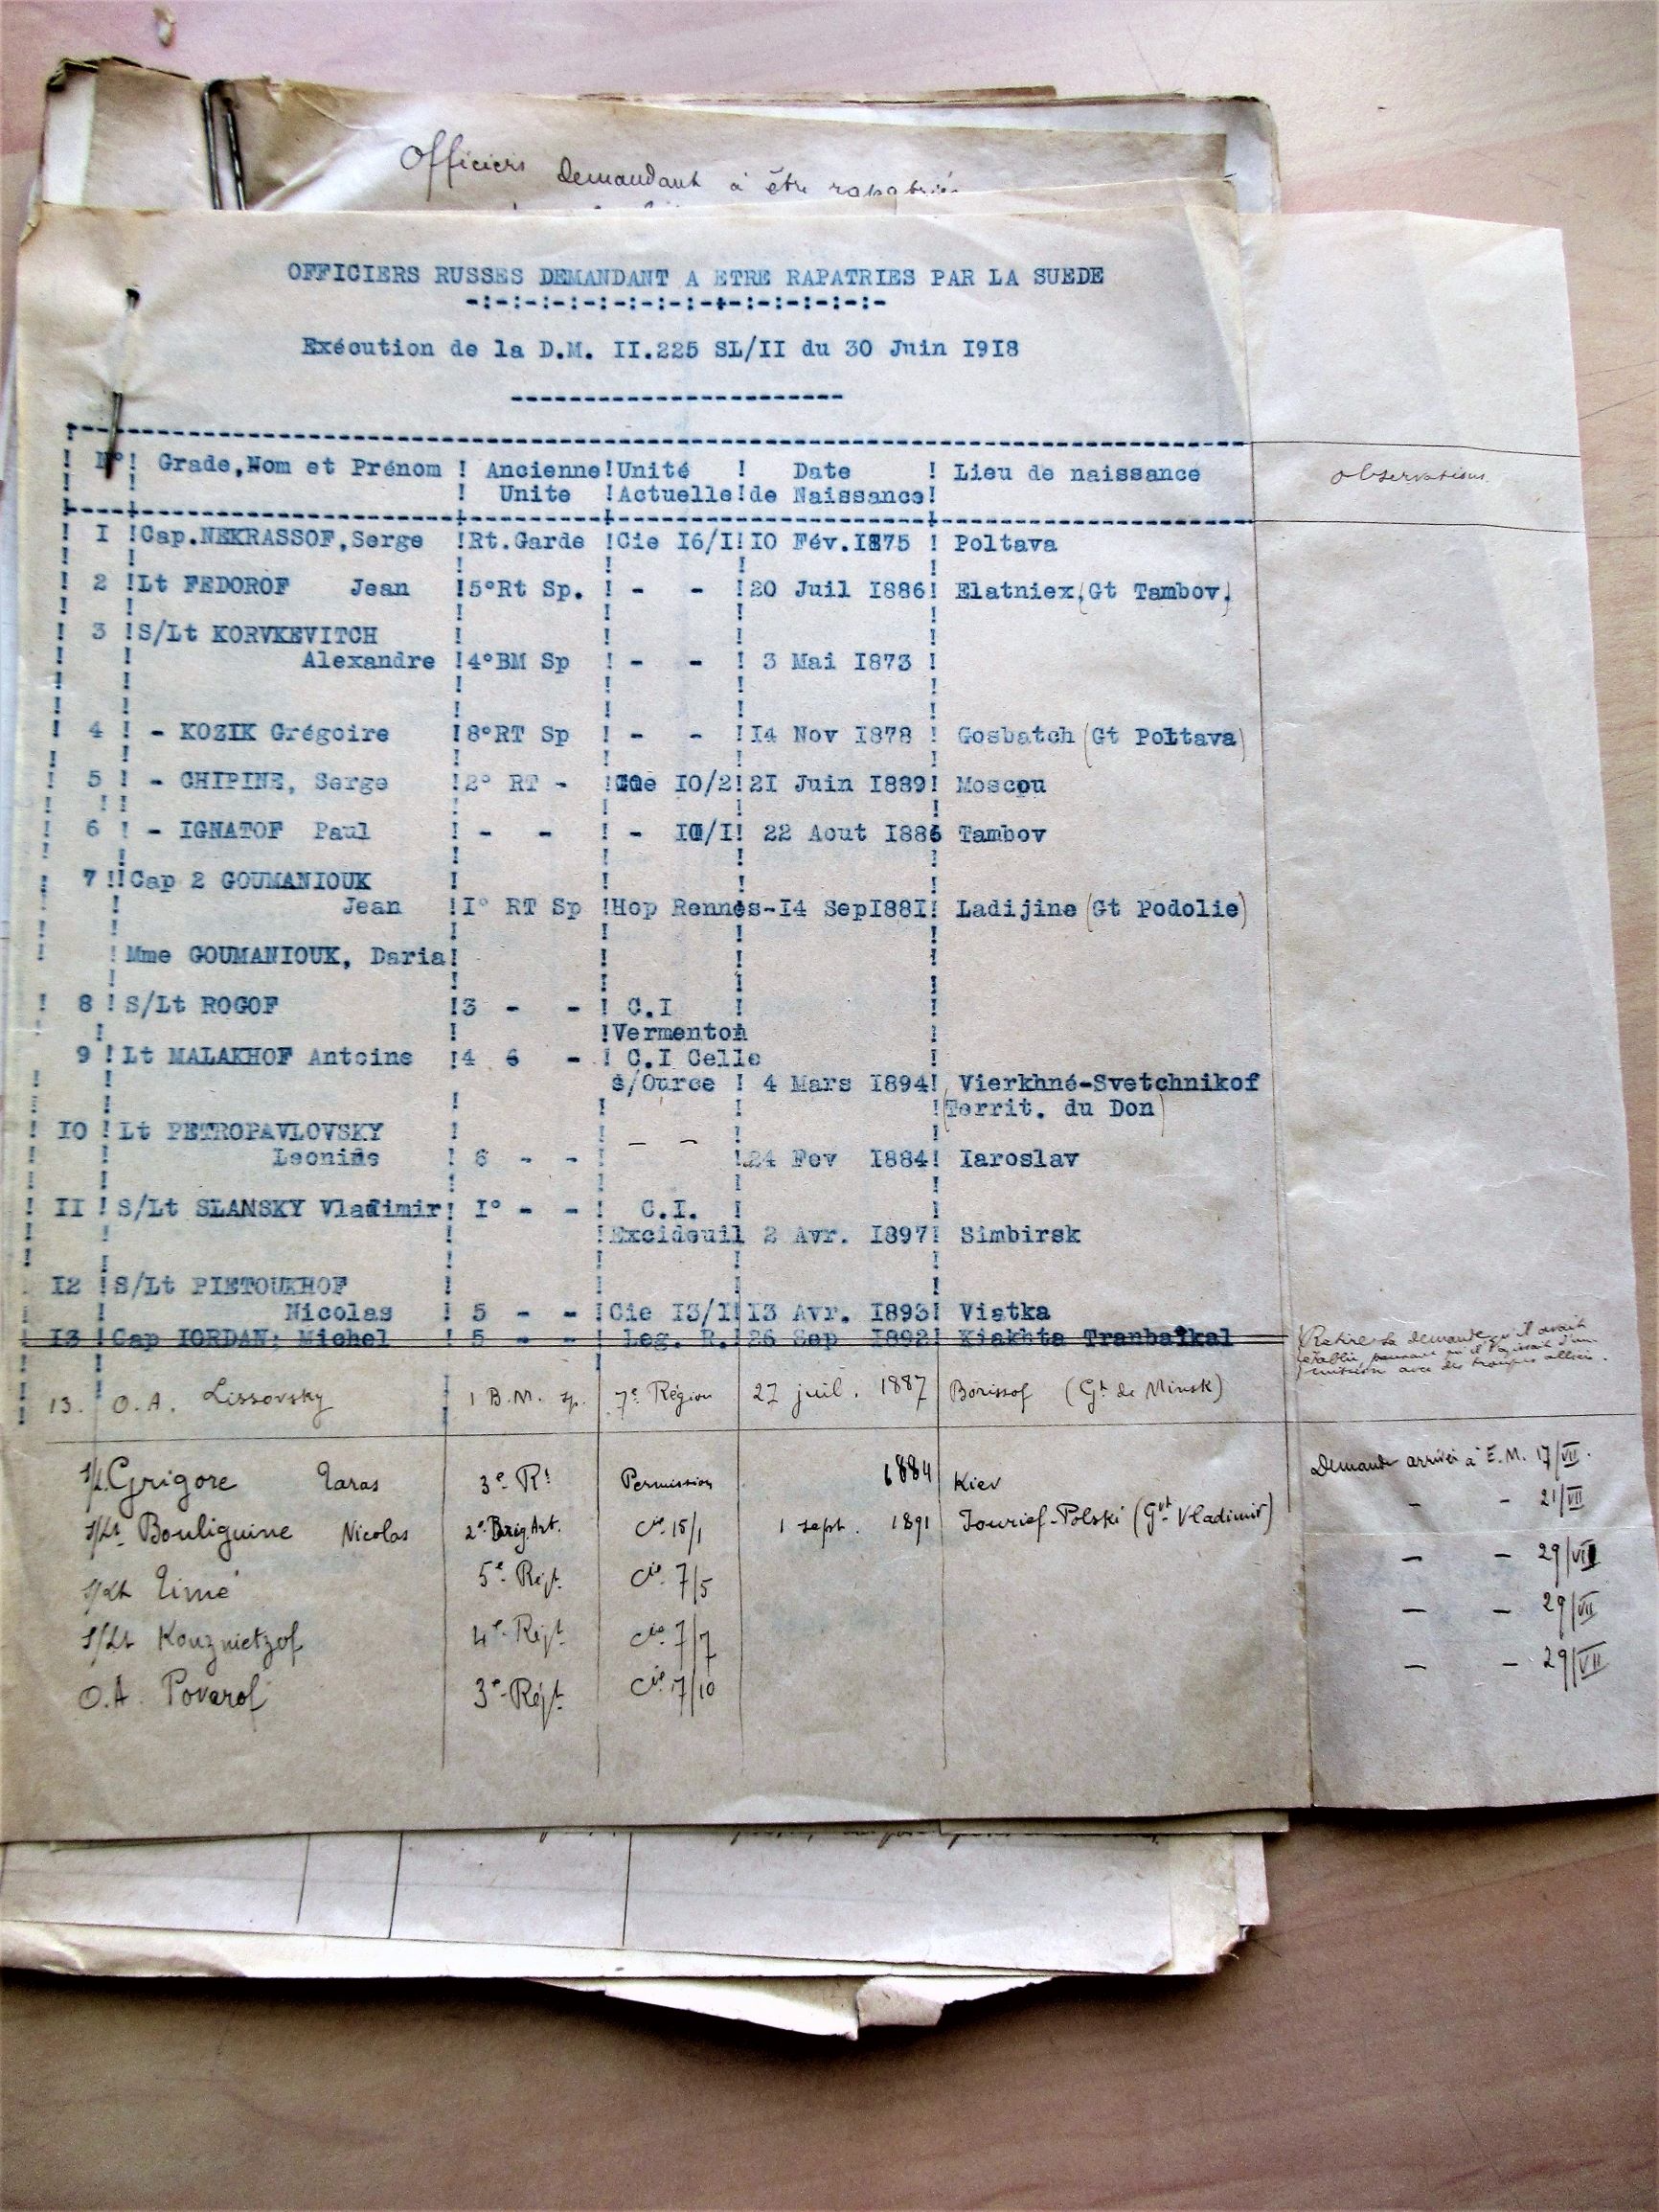 Officiers demandant à être rapatriés
OFFICIERS RUSSES DEMANDANT A ETRE RAPATRIES PAR LA SUEDE
-:-:-:-:-:-:-:-:-+-:-:-:-:-:-
Exécution de la D.M. II.225 SL/II du 30 Juin I9I8
-----------------------
N° ! Grade,Nom et Prénom ! Ancienne!Unité ! Date ! Lieu de naissance Observations
! Unite !Actuelle!de Naissance!
I !Cap.NEKRASSOF,Serge !Rt.Garde !Cie I6/I!IO Fév.I875 ! Poltava
2 !Lt FEDOROF Jean !5°Rt Sp. ! - - !20 Juil I886! Elatniex(Gt Tambov)
3 !S/Lt KORVKEVITCH
Alexandre !4°BM Sp ! - - ! 3 Mai I873 !
4 ! - KOZIK Grégoire !8°RT Sp ! - - !I4 Nov I878 ! Gosbatch (Gt Poltava)
5 ! - CHIPINE, Serge !2° RT - !Cie IO/2!2I Juin I889! Moscou
6 ! - IGNATOF Paul ! - - ! - IO/I! 22 Aout I886 Tambov
7 !!Cap 2 GOUMANIOUK
Jean !I° RT Sp !Hop Rennes-I4 SepI88I! Ladijine (Gt Podolie)
!Mme GOUMANIOUK, Daria!
8 ! S/Lt ROGOF !3 - - ! C.I !
!Vermenton
9 ! Lt MALAKHOF Antoine !4 6 - ! C.I Celle
s/Ource ! 4 Mars I894! Vierkhné-Svetchnikof
!(Territ. du Don)
IO ! Lt PETROPAVLOVSKY ! - -
Leonide ! 6 - - ! !24 Fev I884! Iaroslav
II ! S/Lt SLANSKY Vladimir! I° - - ! C.I. !
!Excideuil 2 Avr. I897! Simbirsk
I2 !S/Lt PIETOUKHOF
Nicolas ! 5 - - !Cie I3/I!I3 Avr. I893! Viatka
I3 !Cap IORDAN; Michel ! 5 - - ! Leg. R.!26 Sep I892! Kiakhta Tranbaïkal
Retire sa demande qu'il avait
établie, pensant qu'il s'agissait d'une
mission avec des troupes alliées.
13. O.A. Lissovsky 1 B.M. sp. 7e Région 27 juil. 1887 Borissof (Gt de Minsk)
S/Lt Grigore Taras 3e Rt Permission 1884 Kiev Demande arrivée à E.M. 17/VII.
S/Lt Bouliguine Nicolas 2e Brig.Art. Cie 15/1 1 sept. 1891 Iourief-Polski (Gvt Vladimir) - - 21/VII
S/Lt Timé 5e Rgt. Cie 7/5 - - 29/VII
S/Lt Kouznietzof 4e Rgt. Cie 7/7 - - 29/VII
O.A. Povarof 3e Rgt. Cie 7/10 - - 29/VII